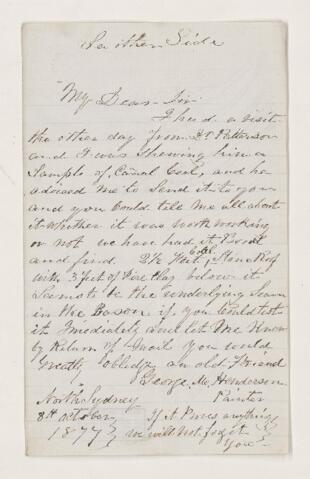 other Side
My Dear Sir
I had a visit
the other day from Patterson
and I was Shewing him a
Sample of Canal Coal, and he
adviced me to Send it to you
and you Could tell me all about
it whether it was worth working
or not we have had it Bored
and find 2½ Feet, Coal Stone Roof
with 3 feet of Fire Clay below it
Seems to be the underlying Seam
in the Bason if you Could test
it Imediately and let Me Know
by Return of Mail you would
Greatly Obledge an old Friend
George Mc Henderson
North Sydney Painter
8th October, if it Proves anything
1877 we will not forget
you